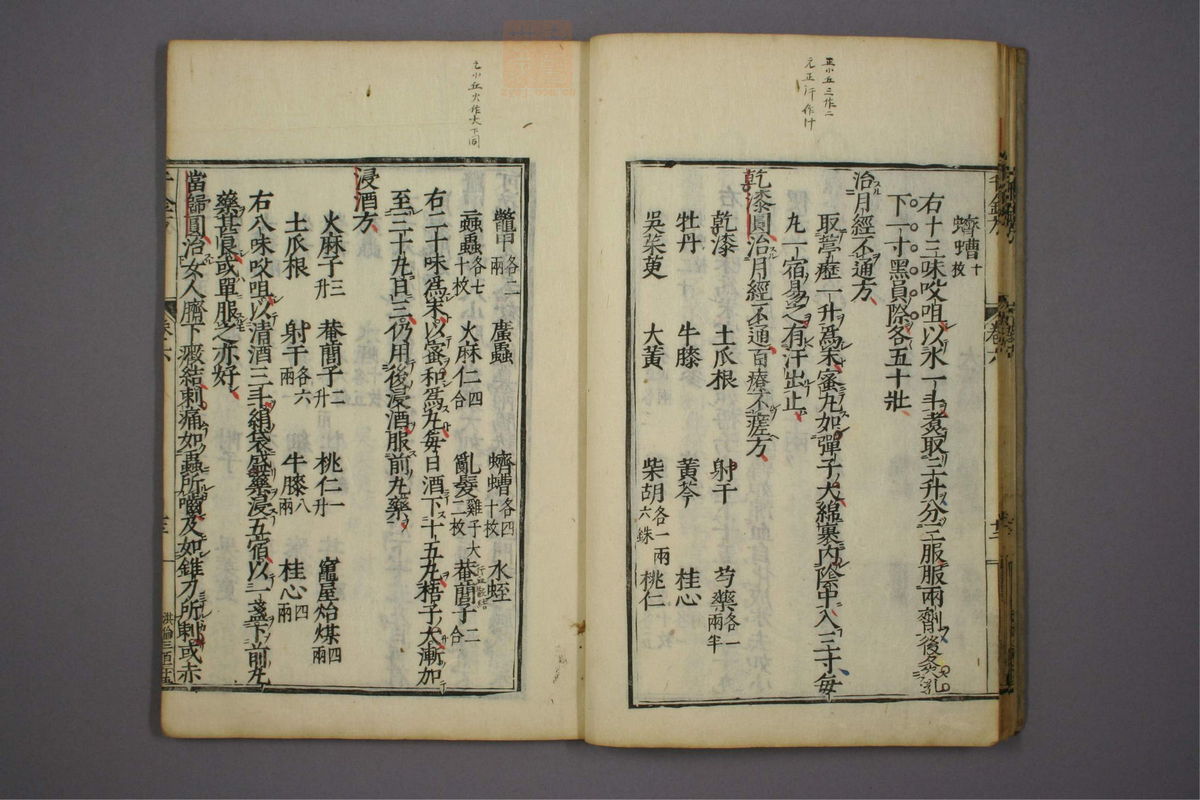 蠐螬十枚
右十三味㕮咀以水一斗煮取三升分三服服兩劑後灸乳
下一寸黑員際各五十壯
治月經不通方
取葶藶一升爲末蜜丸如彈子大綿裹内陰中入三寸每
丸一宿易之有汗出止
乾漆圓治月經不通百療不瘥方
乾漆 土瓜根 射干 芍藥各一兩半
牡丹 牛膝 黃芩 桂心
吳茱萸 大黃 柴胡各一兩六銖 桃仁
鱉甲各二兩 䗪蟲 蠐螬各四十枚 水蛭
蝱蟲各七十枚 火麻仁四合 亂髮雞子大二枚 菴䕡子二合
右二十味爲末以蜜和爲丸每日酒下十五丸梧子大漸加
至三十丸日三仍用後浸酒服前丸藥
浸酒方
火麻子三升 菴䕡子二升 桃仁一升 竈屋炲煤四兩
土瓜根 射干各六兩 牛膝八兩 桂心四兩
右八味㕮咀以清酒三斗絹袋盛藥浸五宿以一盞下前丸
藥甚良或單服之亦好
當歸圓治女人臍下癥結刺痛如蟲所嚙及如錐刀所刺或赤
卷六